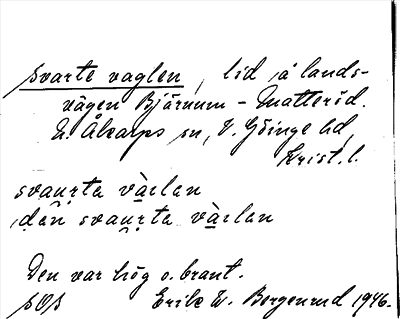 svarte vaglen, lid å lands-
vägen Bjärnum - Matteröd.
N. Åkarps sn, V. Göinge hd,
Krist. l.
svaurta vàglan
dän svaurta vàglan
Den var hög o. brant.
Erik W. Bergenrud 1946.